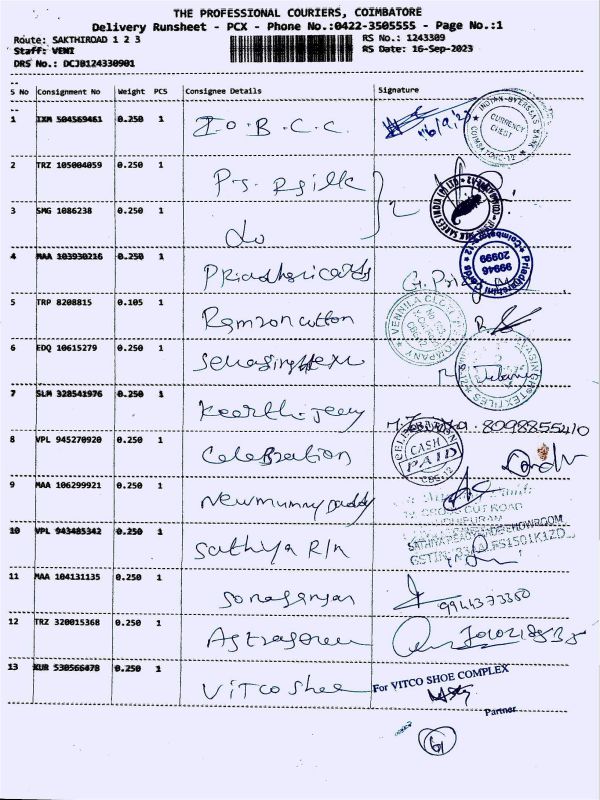 THE PROFESSIONAL COURIERS, COIMBATORE
Delivery Runsheet - PCX - Phone No.:0422-3505555 - Page No.:1
Route: SAKTHIROAD 1 2 3 RS No.: 1243309
Staff: VENI RS Date: 16-Sep-2023
DRS No.: DCJB124330901
S No Consignment No Weight PCS Consignee Details Signature
1 IXM 504569461 0.250 1 I.O.B.C.C. 16/9/23
INDIAN OVERSEAS BANK CURRENCY CHEST COIMBATORE-12
2 TRZ 105004059 0.250 1 P.S. Rsilk
3 SMG 1086238 0.250 1 do
4 MAA 103930216 0.250 1 Priadharicards
Priadharshini Cards 99946 20999 Coimbatore-12
5 TRP 8208815 0.105 1 Ramzon cutton
VENNILA COMPANY
6 EDQ 10615279 0.250 1
TEXTILES
7 SLM 328541976 0.250 1 Keerthi jeey 8098855410
8 VPL 945270920 0.250 1 Celebration
CASH PAID CBE-12
9 MAA 106299921 0.250 1 Newmummy daddy
10 VPL 943485342 0.250 1 Sathya R/n
SHOWROOM
GSTIN:
11 MAA 104131135 0.250 1 9944373350
12 TRZ 320015368 0.250 1
13 KUR 530566478 0.250 1 Vitco shoe
For VITCO SHOE COMPLEX
Partner